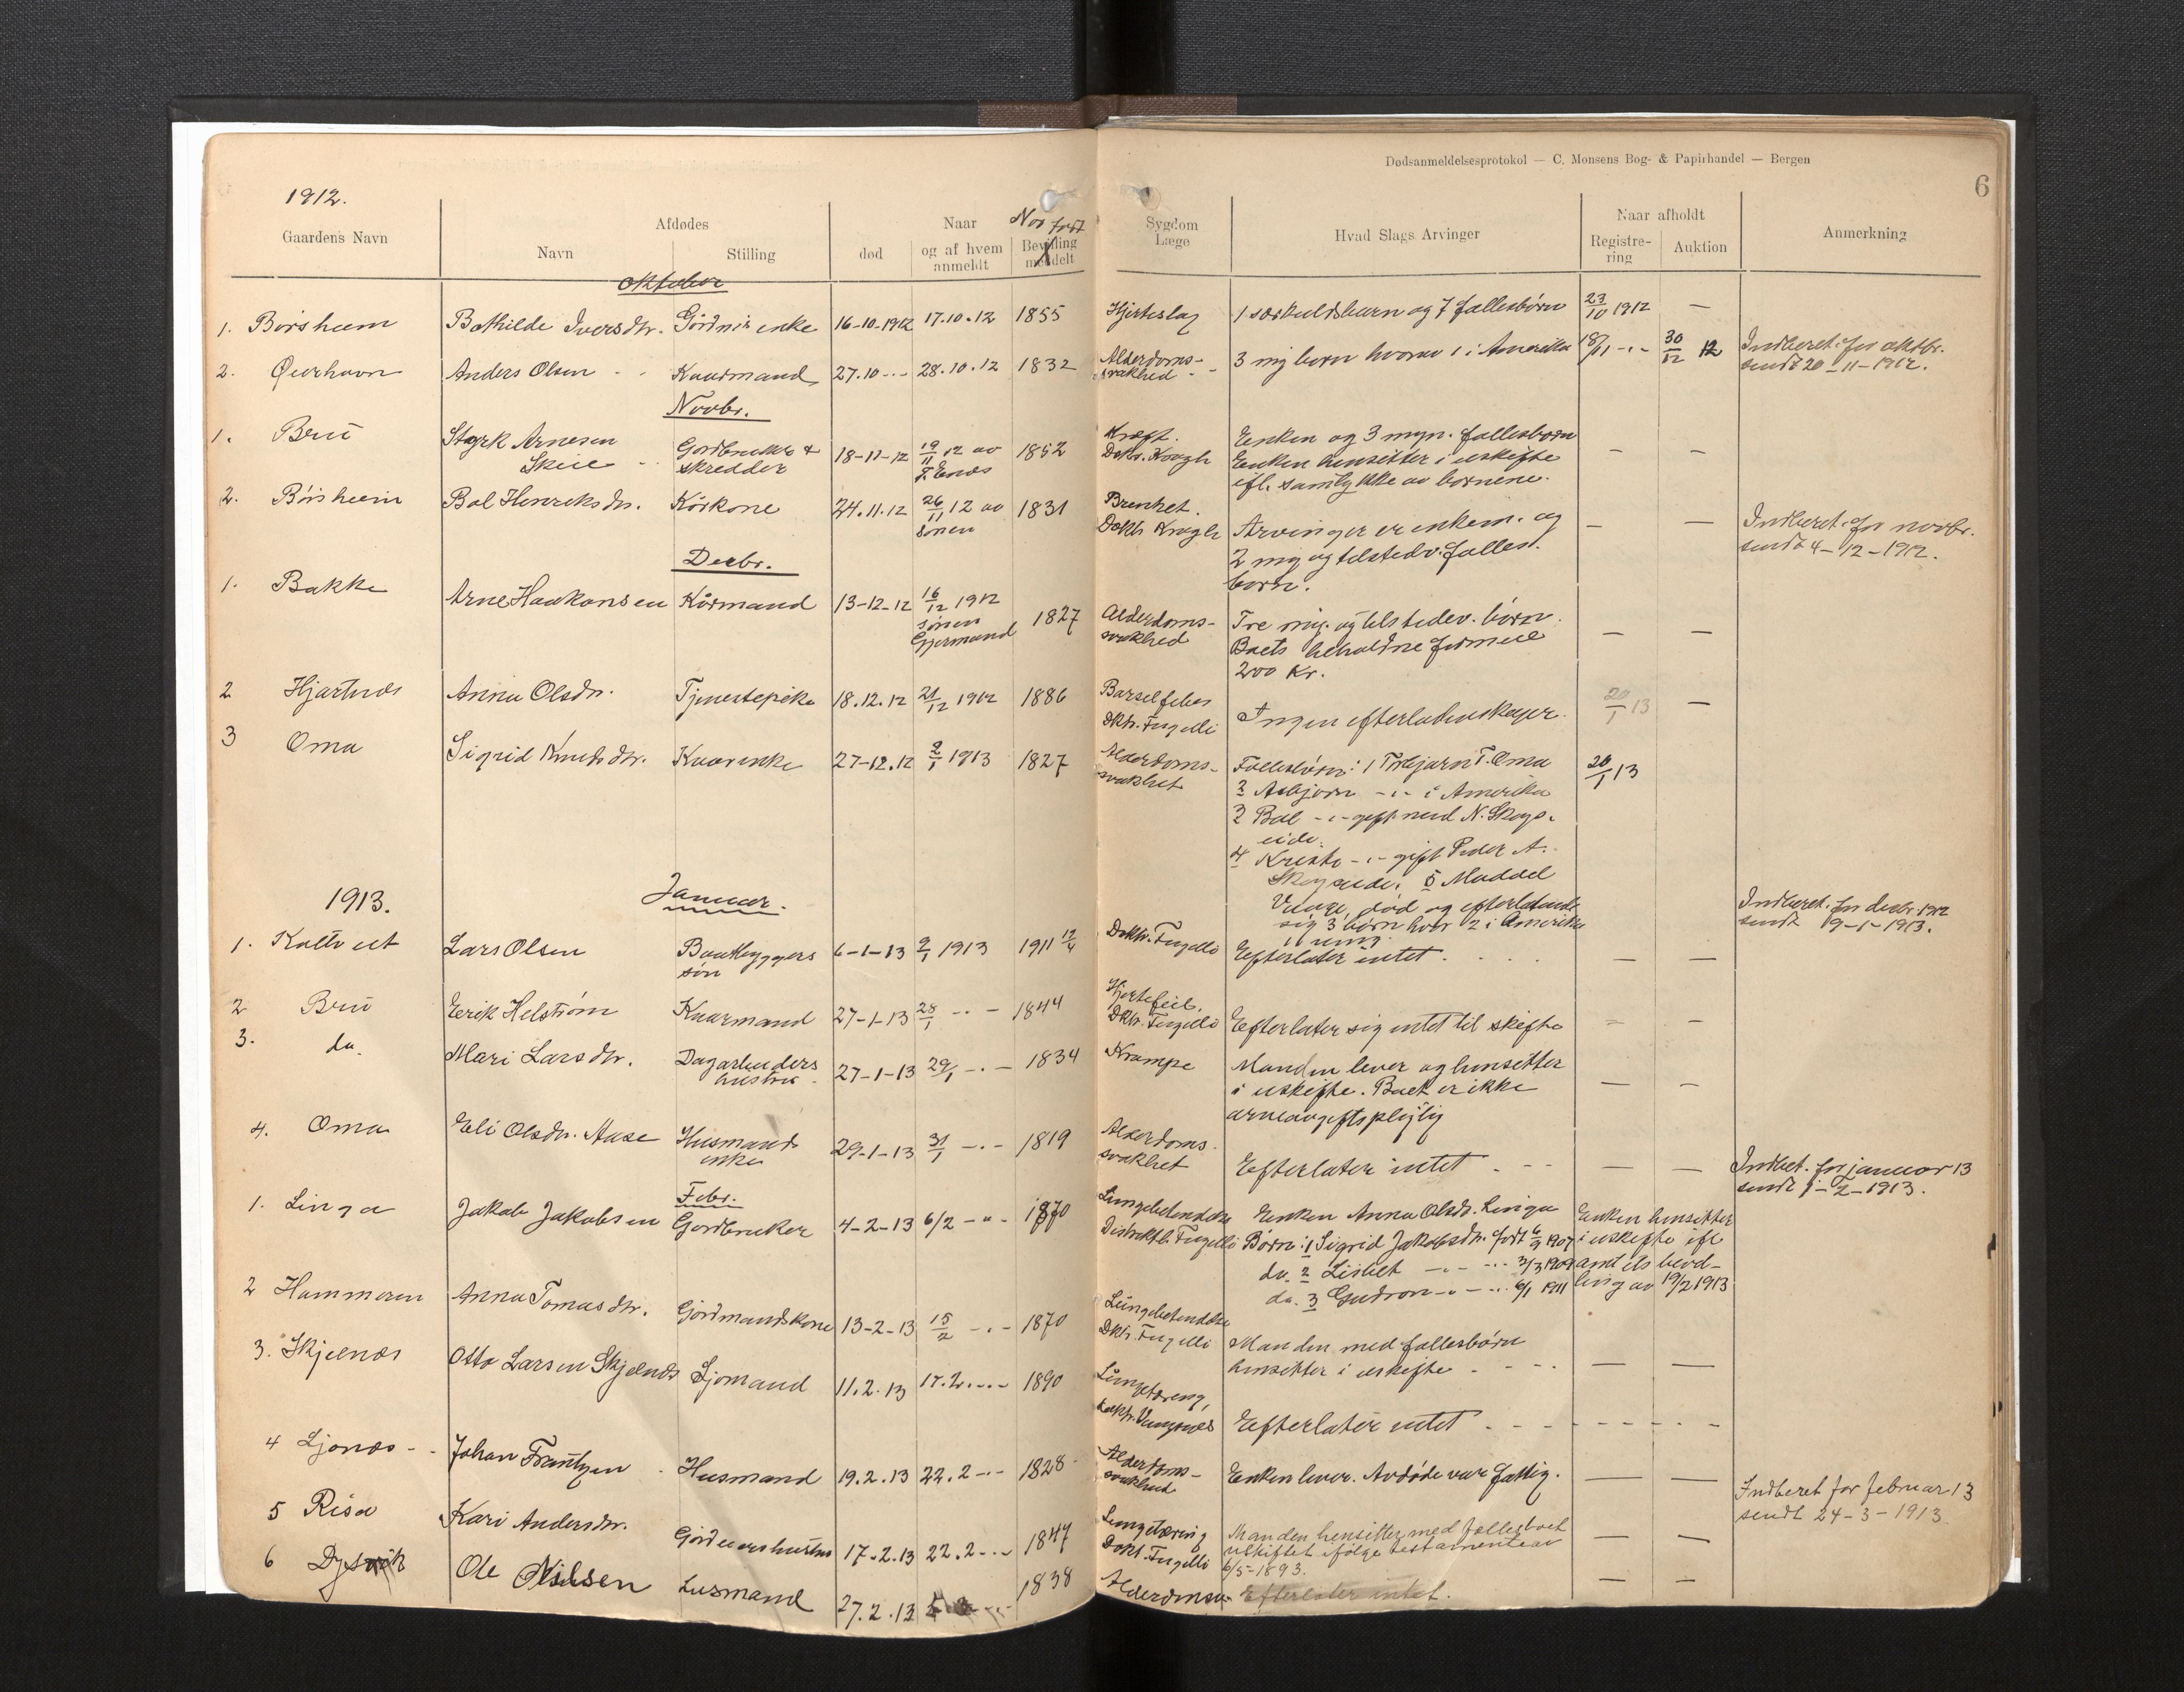 Dødsanmeldelsesprotokol — C. Monsens Bog- & Papirhandel — Bergen
6
1912.
Gaardens Navn
Afdødes
Navn
Stilling
Naar
død
og af hvem anmeldt
Naar født
Bevilling meddelt
Sygdom
Læge
Hvad Slags Arvinger
Naar afholdt
Registre-
ring
Auktion
Anmerkning
Oktober
1. Börsheim Bathilde Iversdtr. Enke 16-10-1912 17.10.12 1855 Hjerteslag 1 særkuldsbarn og 7 fællesbörn 23/10 1912 —
2. Anders Olsen Kaarmand 27.10 28.10.12 1832 Alderdoms-
svakhed 3 myg. børn hvorav 1 i Amerika 18/11 30/12 12 Indberet. for oktbr.
sendt 20-11-1912.
Novbr.
1. Bru Styrk Arnesen
Skeie Gardbruker &
skredder 18-11-12 19/11 12 av 1852 Kræft.
Dokt. Krogh Enken og 3 myn. fællesbørn
Enken hensitter i uskifte
ifl. samtykke av børnene. — —
2. Börsheim Bol Henriksdtr. Kårkone 24.11.12 26/11 12 av
sønen 1831 Doktr Krogh Arvinger er enkem. og
2 myg og tilstedv. fælles
børn. — — Indberet. for novbr.
sendt 4-12-1912.
Decbr.
1. Bakke Arne Haakonsen Kårmand 13-12-12 16/12 1912
sønen
Gjermund 1827 Alderdoms-
svakhed Tre myg. og tilstedev. börn.
Boets beholdne formue
200 Kr. — —
2 Hjartnes Anna Olsdtr. Tjenestepike 18.12.12 21/12 1912 1886 Barselfeber
Dktr. Fugelli Ingen efterladenskaper. 20/1 13 —
3 Oma Sigrid Knutsdtr. Kaarenke 27-12.12 2/1 1913 1827 Alderdoms-
svakhet Fællesbörn: 1 Torbjørn T. Oma
2 Asbjørn -"- i Amerika
3 Bol -"- gift med N. Skogs-
eide.
4 Kristi -"- gift Peder A.
Skogseide. 5 Maddel
Vinge, død og efterlatende
sig 3 børn hvor 2 i Amerika 20/1 13
1913.
Januar.
Indberet. for decbr. 1912
sendt 9-1-1913.
1. Kaltveit Lars Olsen Baatbyggers
søn 6-1-13 9/1 1913 1911 12/4 Doktr. Fugelli Efterlater intet. — —
2 Bru Eerik Helström Kaarmand 27-1-13 28/1 1844 Hjertefeil.
Dktr. Fugelli Efterlater sig intet til skifte — —
3. do. Mari Larsdtr. Dagarbeiders
hustru 27-1-13 29/1 1834 Krampe Manden lever og hensitter
i uskifte. Boet er ikke
arveavgiftspligtig — —
4. Oma Eli Olsdtr. Aase Husmands
enke 29-1-13 31/1 1819 Alderdoms-
svakhet Efterlater intet — — Indbet. for januar 13
sendt 1-2-1913.
Febr.
1. Linga Jakob Jakobsen Gardbruker 4-2-13 6/2 1870 Lungebetendelse
Distriktl. Fugelli Enken Anna Olsdtr. Linga
Børn: 1 Sigrid Jakobsdtr. født 6/9 1907
do. 2 Lisbet 3/3 1909
do. 3 Gudron 6/1 1911 Enken hensitter
i uskifte ifl
amtets bevil-
ling av 19/2 1913
2 Hammeren Anna Tomasdtr. Gårdmandskone 13-2-13 15/2 1870 Lungebetendelse
Dktr. Fugelli Manden med fællesbørn
hensitter i uskifte — —
3. Skjelnes Otto Larsen Skjelnes Sjömand 11.2.13 17.2. 1890 Lungetæring, Efterlater intet
4 Ljones Johan Frantzen Husmand 19.2.13 22.2 1828 Alderdoms-
svakhed Enken lever. Avdøde var fattig. — — Indberet for februar 13
sendt 24-3-1913.
5 Risa Kari Andersdtr. 17.2.13 22.2 1847 Lungetæring
Dokt. Fugelli Manden hensitter med fællesboet
uskiftet ifølge testamente av
6/5-1893. — —
6 Dysvik Ole Nilssen Husmand 27.2.13 1838 Alderdomsv. Efterlater intet. — —